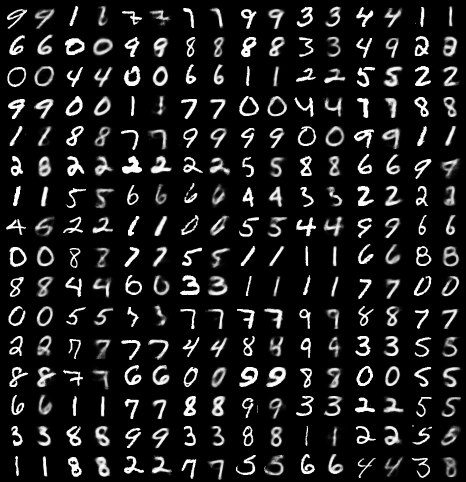 9 9 1 1 7 7 1 1 9 9 3 3 4 4 1 1
6 6 0 0 9 9 8 8 8 8 3 3 4 9 2 2
0 0 4 4 0 0 6 6 1 1 2 2 5 5 2 2
9 9 0 0 1 1 7 7 0 0 4 4 7 7 8 8
1 1 8 8 7 7 9 9 9 9 0 0 9 9 1 1
2 8 2 2 2 2 2 2 5 5 8 8 6 6 9 9
1 1 5 5 6 6 6 6 4 4 3 3 2 2 2 2
4 6 2 2 1 1 0 0 5 5 4 4 9 9 6 6
0 0 8 8 7 7 5 5 1 1 1 1 6 6 8 8
8 8 4 4 0 0 3 3 1 1 1 1 7 7 0 0
0 0 5 5 3 3 7 7 7 7 9 9 8 8 7 7
2 2 7 7 7 7 4 4 8 8 9 9 3 3 5 5
8 8 7 7 6 6 0 0 9 9 8 8 0 0 5 5
6 6 1 1 7 7 8 8 9 9 3 3 2 2 5 5
3 3 8 8 9 9 3 3 8 8 1 1 2 2 5 5
1 1 8 8 2 2 7 7 5 5 6 6 4 4 3 8